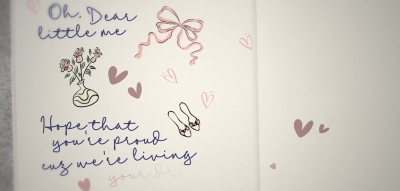 Oh, Dear
little me
Hope that
you're proud
cuz we're living
your d...